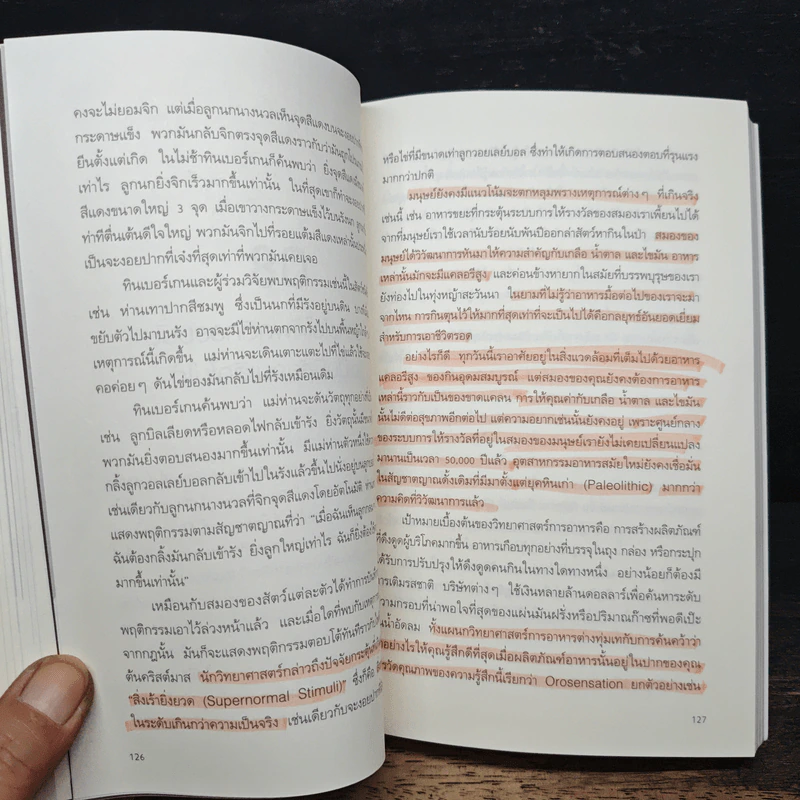 คงจะไม่ยอมจิก แต่เมื่อลูกนกนางนวลเห็นจุดสีแดงบนจะงอย
กระดาษแข็ง พวกมันกลับจิกตรงจุดสีแดงราวกับว่ามันถูก
ยืนตั้งแต่เกิด ในไม่ช้าทินเบอร์เกนก็ค้นพบว่า ยิ่งจุดสีแดง
เท่าไร ลูกนกยิ่งจิกเร็วมากขึ้นเท่านั้น ในที่สุดเขาก็ทำ
สีแดงขนาดใหญ่ 3 จุด เมื่อเขาวางกระดาษแข็งไว้บนรังนก
ท่าทีตื่นเต้นดีใจใหญ่ พวกมันจิกไปที่รอยแต้มสีแดงเหล่านั้น
เป็นจะงอยปากที่เจ๋งที่สุดเท่าที่พวกมันเคยเจอ
ทินเบอร์เกนและผู้ร่วมวิจัยพบพฤติกรรมเช่นนี้ใน
เช่น ห่านเทาปากสีชมพู ซึ่งเป็นนกที่มีรังอยู่บนดิน
ขยับตัวไปมาบนรัง อาจจะมีไข่ห่านตกจากรังไปบนพื้นหญ้า
เหตุการณ์นี้เกิดขึ้น แม่ห่านจะเดินเตาะแตะไปที่ไข่แล้ว
คอค่อยๆ ดันไข่ของมันกลับไปที่รังเหมือนเดิม
ทินเบอร์เกนค้นพบว่า แม่ห่านจะดันวัตถุทุกอย่าง
เช่น ลูกบิลเลียดหรือหลอดไฟกลับเข้ารัง ยิ่งวัตถุนั้น
พวกมันยิ่งตอบสนองมากขึ้นเท่านั้น มีแม่ห่านตัวหนึ่ง
กลิ้งลูกวอลเลย์บอลกลับเข้าไปในรังแล้วขึ้นไปนั่งอยู่บน
เช่นเดียวกับลูกนกนางนวลที่จิกจุดสีแดงโดยอัตโนมัติ
แสดงพฤติกรรมตามสัญชาตญาณที่ว่า "เมื่อฉันเห็นลูกกลมๆ
ฉันต้องกลิ้งมันกลับเข้ารัง ยิ่งลูกใหญ่เท่าไร ฉันก็ยิ่งต้อง
มากขึ้นเท่านั้น"
เหมือนกับสมองของสัตว์แต่ละตัวได้ทำการ
พฤติกรรมเอาไว้ล่วงหน้าแล้ว และเมื่อใดที่พบกับ
จากกฎนั้น มันก็จะแสดงพฤติกรรมตอบโต้ทันทีราวกับ
ต้นคริสต์มาส นักวิทยาศาสตร์กล่าวถึงปัจจัยกระตุ้น
"สิ่งเร้ายิ่งยวด (Supernormal Stimuli)" ซึ่งก็คือ
ในระดับเกินกว่าความเป็นจริง เช่นเดียวกับจะงอยปาก
126
หรือไข่ที่มีขนาดเท่าลูกวอลเลย์บอล ซึ่งทำให้เกิดการตอบสนองตอบที่รุนแรง
มากกว่าปกติ
มนุษย์ยังคงมีแนวโน้มจะตกหลุมพรางเหตุการณ์ต่างๆ ที่เกินจริง
เช่นนี้ เช่น อาหารขยะที่กระตุ้นระบบการให้รางวัลของสมองเราเพี้ยนไปได้
จากที่มนุษย์เราใช้เวลานับร้อยนับพันปีออกล่าสัตว์หากินในป่า สมองของ
มนุษย์ได้วิวัฒนาการหันมาให้ความสำคัญกับเกลือ น้ำตาล และไขมัน อาหาร
เหล่านั้นมักจะมีแคลอรีสูง และค่อนข้างหายากในสมัยที่บรรพบุรุษของเรา
ยังท่องไปในทุ่งหญ้าสะวันนา ในยามที่ไม่รู้ว่าอาหารมื้อต่อไปของเราจะมา
จากไหน การกินตุนไว้ให้มากที่สุดเท่าที่จะเป็นไปได้คือกลยุทธ์อันยอดเยี่ยม
สำหรับการเอาชีวิตรอด
อย่างไรก็ดี ทุกวันนี้เราอาศัยอยู่ในสิ่งแวดล้อมที่เต็มไปด้วยอาหาร
แคลอรีสูง ของกินอุดมสมบูรณ์ แต่สมองของคุณยังคงต้องการอาหาร
เหล่านี้ราวกับเป็นของขาดแคลน การให้คุณค่ากับเกลือ น้ำตาล และไขมัน
นั้นไม่ดีต่อสุขภาพอีกต่อไป แต่ความอยากเช่นนั้นยังคงอยู่ เพราะศูนย์กลาง
ของระบบการให้รางวัลที่อยู่ในสมองของมนุษย์เรายังไม่เคยเปลี่ยนแปลง
มานานเป็นเวลา 50,000 ปีแล้ว อุตสาหกรรมอาหารสมัยใหม่ยังคงเชื่อมั่น
ในสัญชาตญาณดั้งเดิมที่มีมาตั้งแต่ยุคหินเก่า (Paleolithic) มากกว่า
ความคิดที่วิวัฒนาการแล้ว
เป้าหมายเบื้องต้นของวิทยาศาสตร์การอาหารคือ การสร้างผลิตภัณฑ์
ที่ดึงดูดผู้บริโภคมากขึ้น อาหารเกือบทุกอย่างที่บรรจุในถุง กล่อง หรือกระปุก
ได้รับการปรับปรุงให้ดึงดูดคนกินในทางใดทางหนึ่ง อย่างน้อยก็ต้องมี
การเติมรสชาติ บริษัทต่างๆ ใช้เงินหลายล้านดอลลาร์เพื่อค้นหาระดับ
ความกรอบที่น่าพอใจที่สุดของแผ่นมันฝรั่งหรือปริมาณก๊าซที่พอดีเป๊ะ
น้ำอัดลม ทั้งแผนกวิทยาศาสตร์การอาหารต่างทุ่มเทกับการค้นคว้าว่า
อย่างไรให้คุณรู้สึกดีที่สุดเมื่อผลิตภัณฑ์อาหารนั้นอยู่ในปากของคุณ
วัดคุณภาพของความรู้สึกนี้เรียกว่า Orosensation ยกตัวอย่างเช่น
127